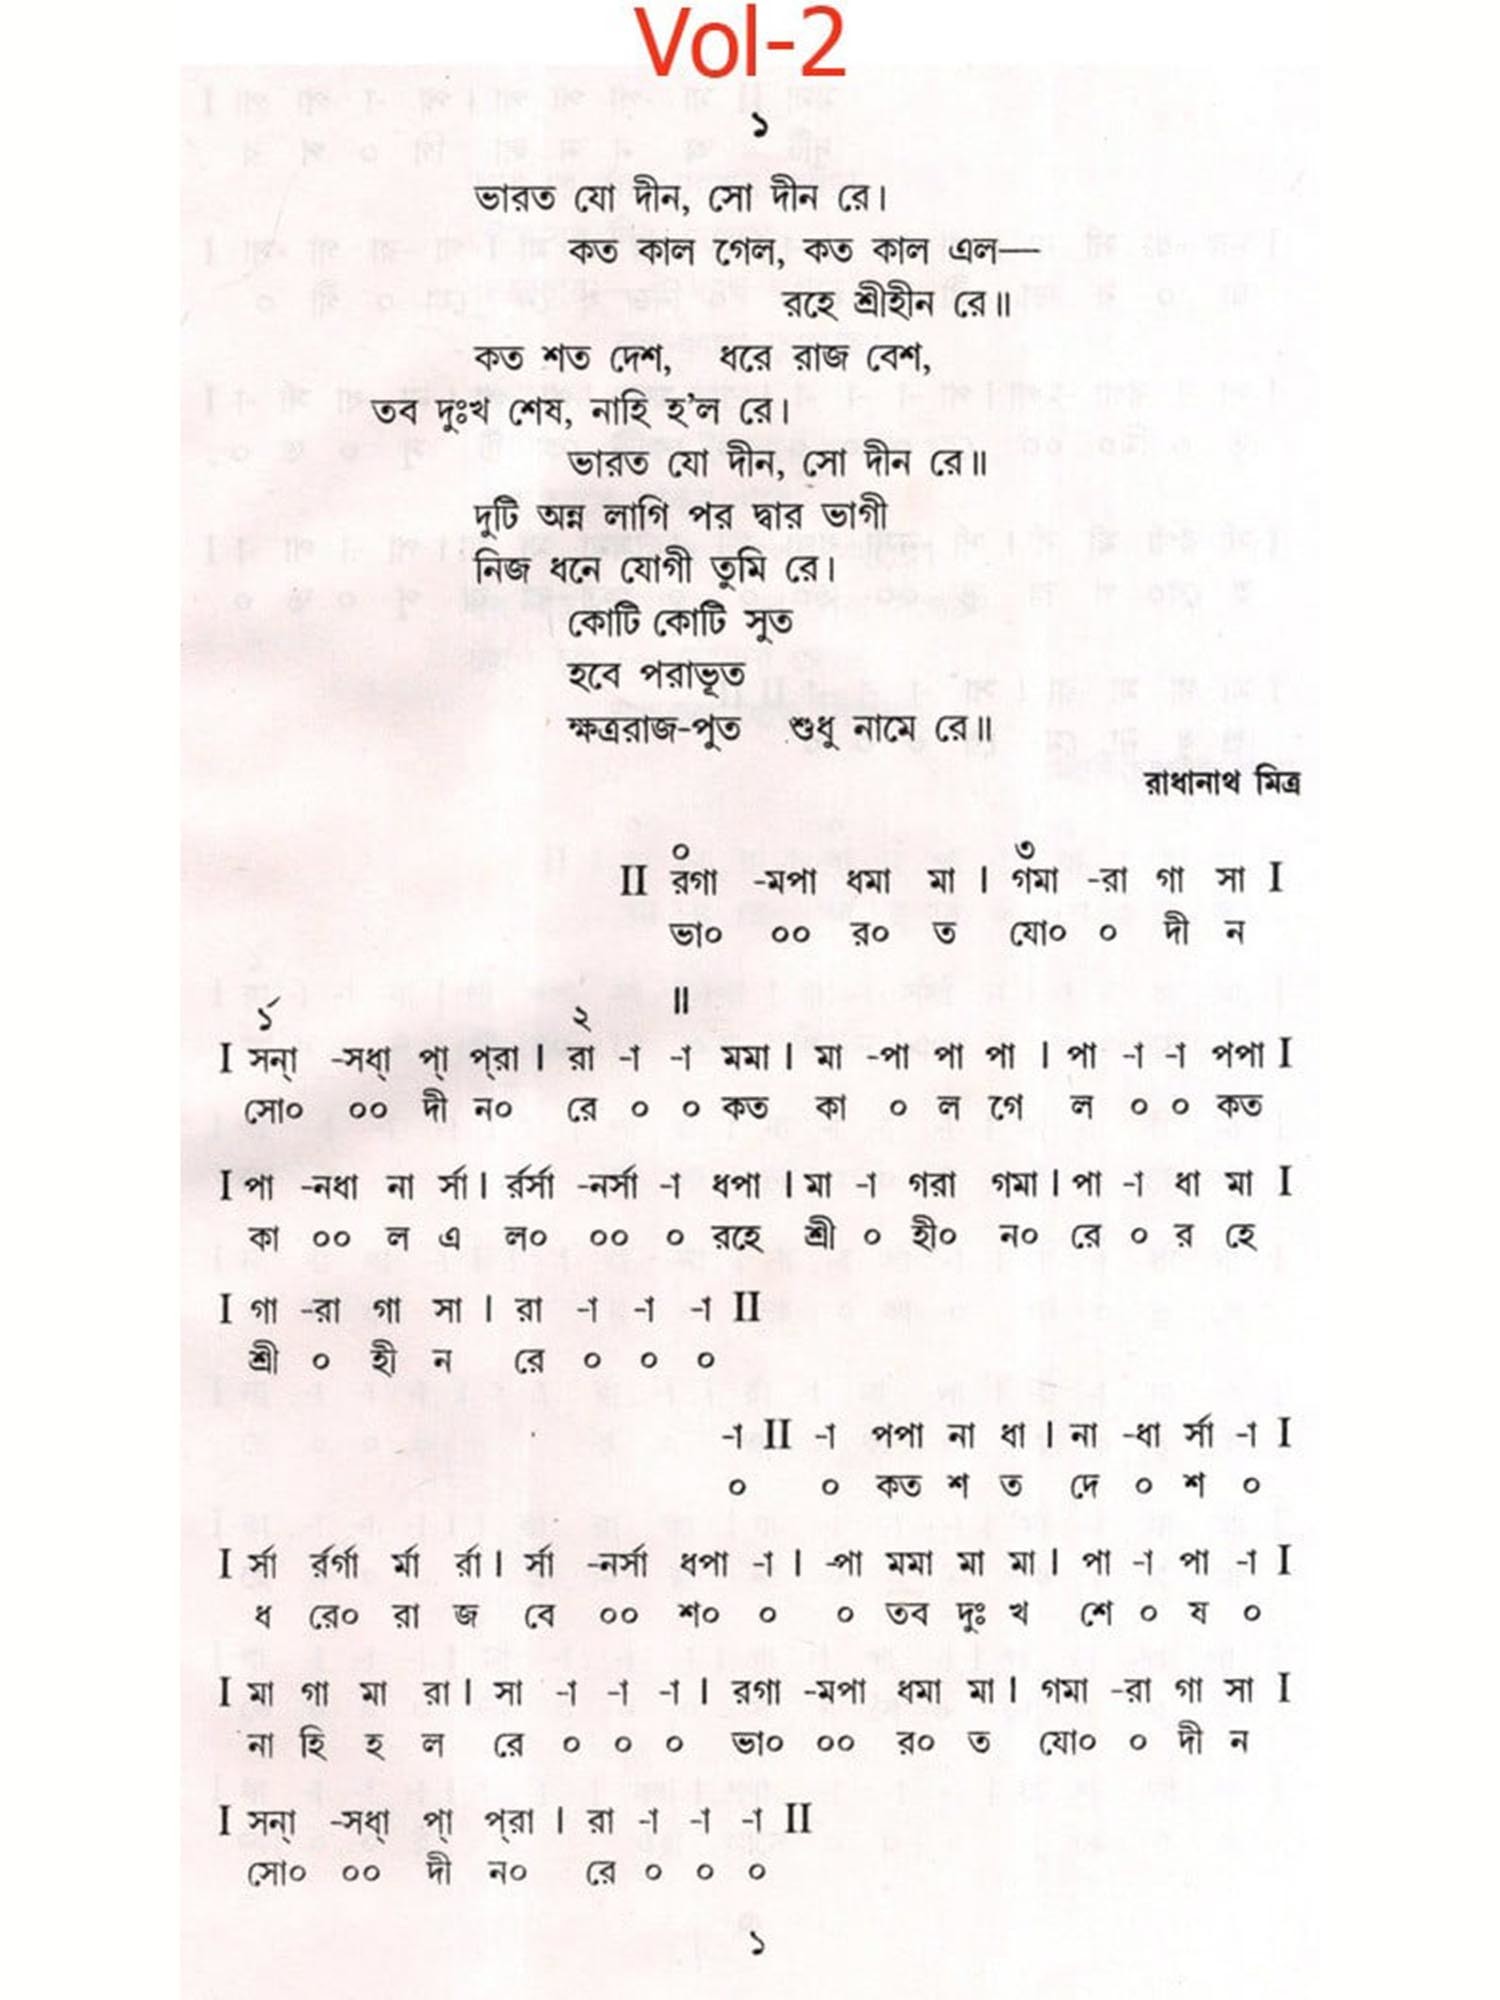 Vol-2
১
ভারত যো দীন, সো দীন রে।
কত কাল গেল, কত কাল এল—
রহে শ্রীহীন রে॥
কত শত দেশ, ধরে রাজ বেশ,
তব দুঃখ শেষ, নাহি হ'ল রে।
ভারত যো দীন, সো দীন রে॥
দুটি অন্ন লাগি পর দ্বার ভাগী
নিজ ধনে যোগী তুমি রে।
কোটি কোটি সুত
হবে পরাভূত
ক্ষত্ররাজ-পুত শুধু নামে রে॥
রাধানাথ মিত্র
০ ৩
II রগা -মপা ধমা মা । গমা -রা গা সা I
ভা০ ০০ র০ ত যো০ ০ দী ন
১´ ২ ॥
I সন্া -সধ্া প্া প্‌রা । রা -া -া মমা । মা -পা পা পা । পা -া -া পপা I
সো০ ০০ দী ন০ রে ০ ০ কত কা ০ ল গে ল ০ ০ কত
I পা -নধা না র্সা । র্রর্সা -নর্সা -া ধপা । মা -া গরা গমা । পা -া ধা মা I
কা ০০ ল এ ল০ ০০ ০ রহে শ্রী ০ হী০ ন০ রে ০ র হে
I গা -রা গা সা । রা -া -া -া II
শ্রী ০ হী ন রে ০ ০ ০
-া II -া পপা না ধা । না -ধা র্সা -া I
০ ০ কত শ ত দে ০ শ ০
I র্সা র্রর্গা র্মা র্রা । র্সা -নর্সা ধপা -া । -পা মমা মা মা । পা -া পা -া I
ধ রে০ রা জ বে ০০ শ০ ০ ০ তব দুঃ খ শে ০ ষ ০
I মা গা মা রা । সা -া -া -া । রগা -মপা ধমা মা । গমা -রা গা সা I
না হি হ ল রে ০ ০ ০ ভা০ ০০ র০ ত যো০ ০ দী ন
I সন্া -সধ্া প্া প্‌রা । রা -া -া -া II
সো০ ০০ দী ন০ রে ০ ০ ০
১